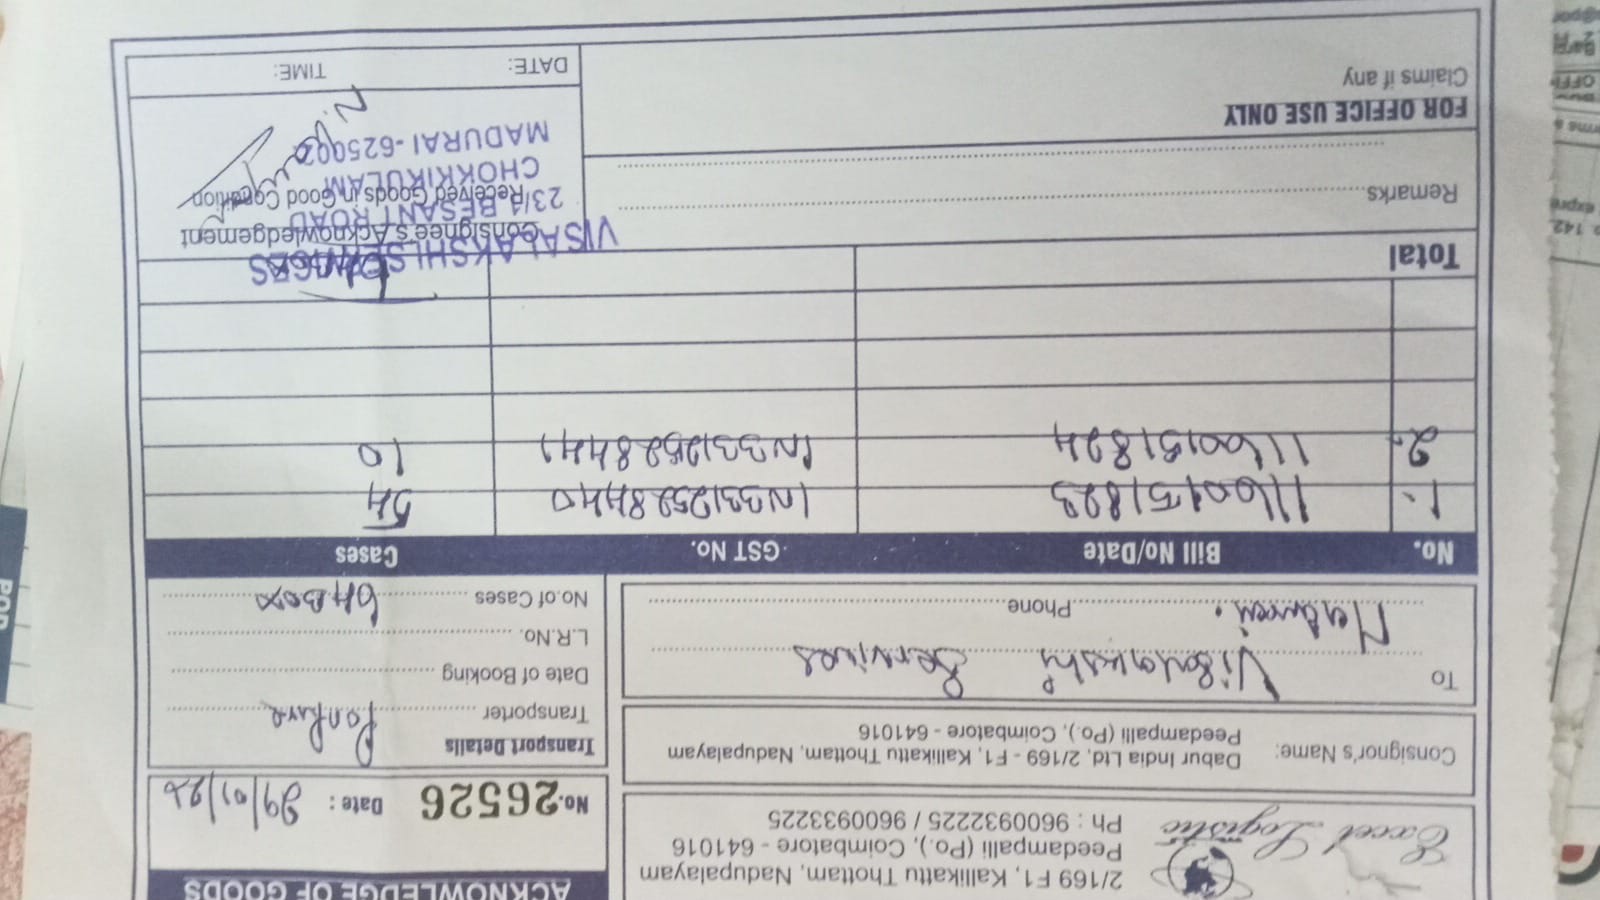 ACKNOWLEDGE OF GOODS
Excel Logistic
2/169 F1, Kallikattu Thottam, Nadupalayam
Peedampalli (Po.), Coimbatore - 641016
Ph : 9600932225 / 9600933225
No. 26526 Date :
Consignor's Name: Dabur India Ltd, 2/169 - F1, Kallikattu Thottam, Nadupalayam
Peedampalli (Po.), Coimbatore - 641016
Transport Details
Transporter
Date of Booking
L.R.No.
No.of Cases 64 Box
To Visalakshi Services
Madurai. Phone
No. Bill No/Date GST No. Cases
1. 1160151823 IN3312528440 54
2. 1160151824 IN3312528441 10
Total
Remarks
FOR OFFICE USE ONLY
Claims if any
Consignee's Acknowledgement
Received Goods in Good Condition
VISALAKSHI
23/1 BESANT ROAD
CHOKKIKULAM
MADURAI -
DATE: TIME:
POD